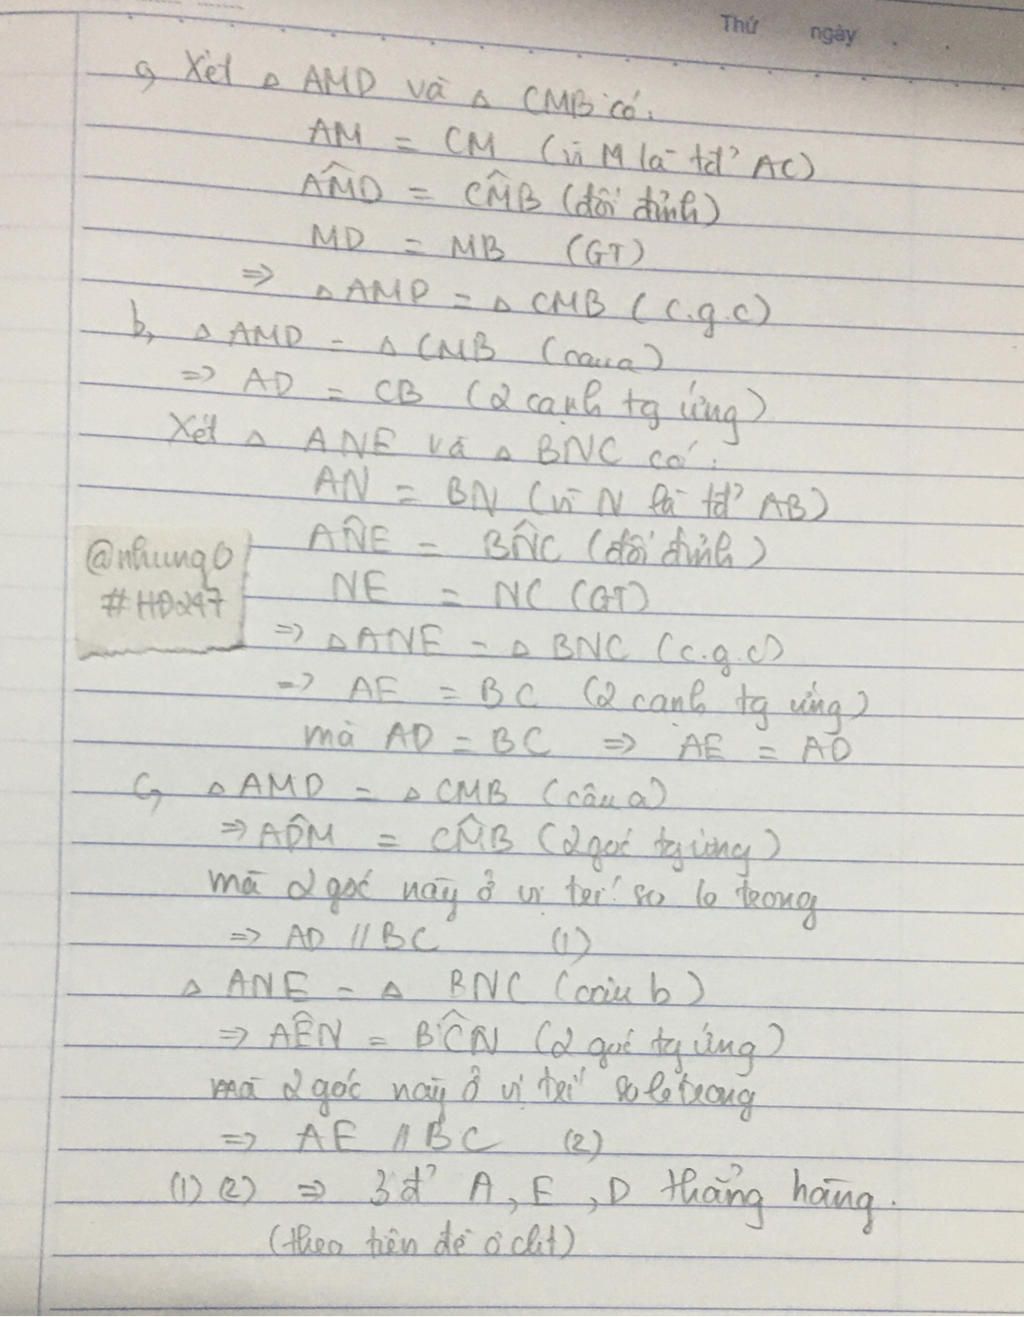 Thứ ngày
a, Xét △ AMD và △ CMB có:
AM = CM (vì M là tđ' AC)
AM̂D = CM̂B (đối đỉnh)
MD = MB (GT)
=> △AMD = △ CMB (c.g.c)
b, △ AMD = △ CMB (câu a)
=> AD = CB (2 cạnh tg ứng)
Xét △ ANE và △ BNC có:
AN = BN (vì N là tđ' AB)
AN̂E = BN̂C (đối đỉnh)
@nhung0
NE = NC (GT)
#HĐ247
=> △ANE = △ BNC (c.g.c)
=> AE = BC (2 cạnh tg ứng)
mà AD = BC => AE = AD
c, △AMD = △CMB (câu a)
=> AD̂M = CM̂B (2 góc tg ứng)
mà 2 góc này ở vị trí so le trong
=> AD // BC (1)
△ ANE = △ BNC (câu b)
=> AÊN = BĈN (2 góc tg ứng)
mà 2 góc này ở vị trí so le trong
=> AE // BC (2)
(1) (2) => 3 đ' A, E, D thẳng hàng.
(theo tiên đề ơ clit)